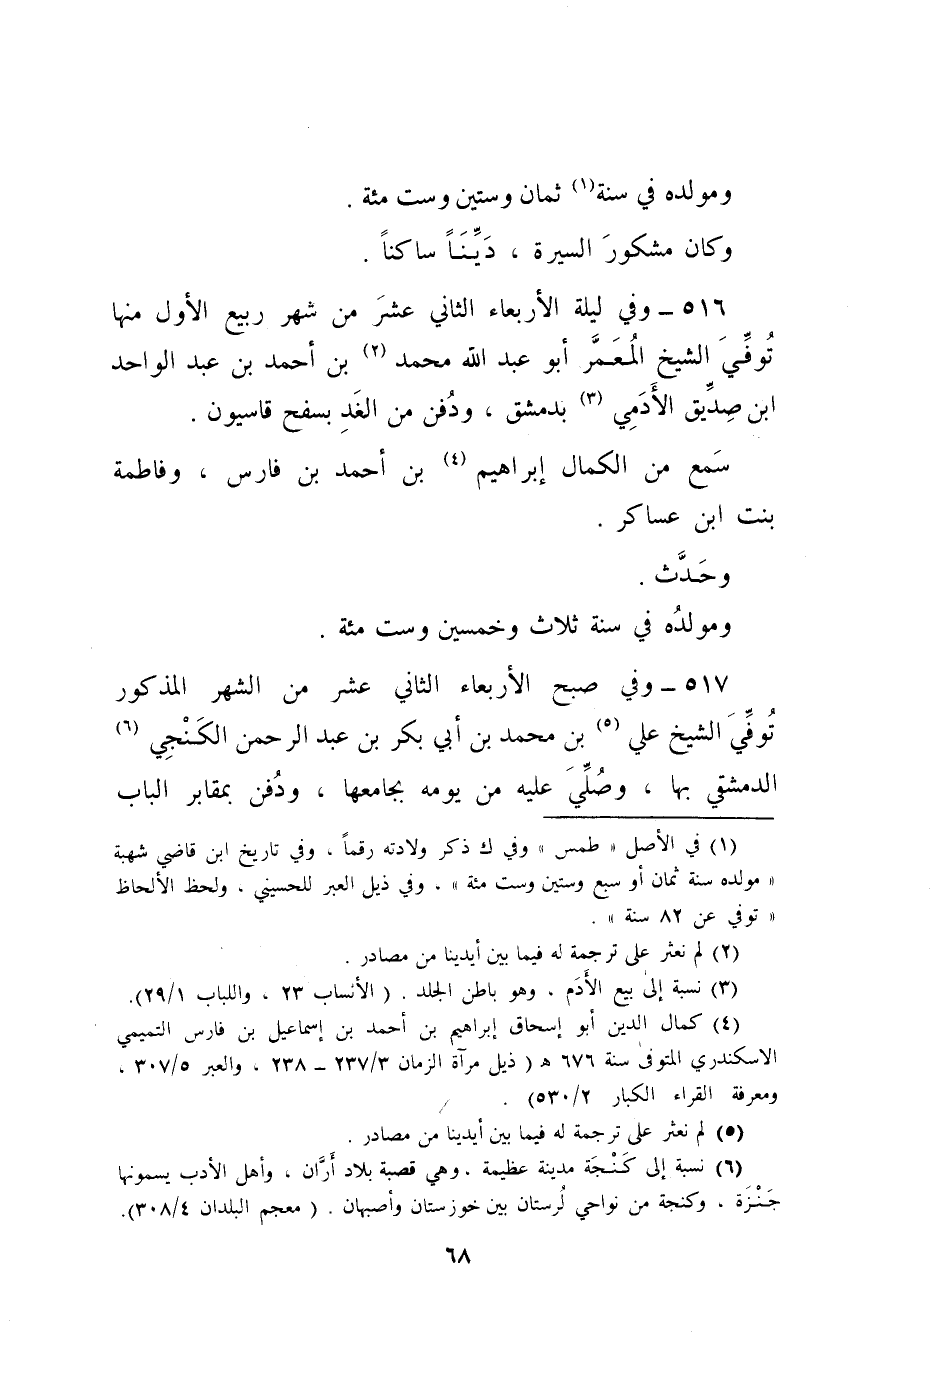 ومولده في سنة(١) ثمان وستين وست مئة .
وكان مشكورَ السيرة ، دَيِّنَاً ساكناً .
٥١٦ ــ وفي ليلة الأربعاء الثاني عشرَ من شهر ربيع الأول منها
تُوفِّيَ الشيخ المُعَمَّر أبو عبد الله محمد (٢) بن أحمد بن عبد الواحد
ابن صِدِّيق الأَدَمِي (٣) بدمشق ، ودُفن من الغَدِ بسفح قاسيون .
سَمع من الكمال إبراهيم (٤) بن أحمد بن فارس ، وفاطمة
بنت ابن عساكر .
وحَدَّث .
ومولدُه في سنة ثلاث وخمسين وست مئة .
٥١٧ ــ وفي صبح الأربعاء الثاني عشر من الشهر المذكور
تُوفِّيَ الشيخ علي (٥) بن محمد بن أبي بكر بن عبد الرحمن الكَنْجِي (٦)
الدمشقي بها ، وصُلِّيَ عليه من يومه بجامعها ، ودُفن بمقابر الباب
(١) في الأصل « طمس » وفي ك ذكر ولادته رقماً ، وفي تاريخ ابن قاضي شهبة
« مولده سنة ثمان أو سبع وستين وست مئة » ، وفي ذيل العبر للحسيني ، ولحظ الألحاظ
« توفي عن ٨٢ سنة » .
(٢) لم نعثر على ترجمة له فيما بين أيدينا من مصادر .
(٣) نسبة إلى بيع الأَدَم ، وهو باطن الجلد . ( الأنساب ٢٣ ، واللباب ٢٩/١).
(٤) كمال الدين أبو إسحاق إبراهيم بن أحمد بن إسماعيل بن فارس التميمي
الاسكندري المتوفى سنة ٦٧٦ هـ ( ذيل مرآة الزمان ٢٣٧/٣ ــ ٢٣٨ ، والعبر ٣٠٧/٥ ،
ومعرفة القراء الكبار ٥٣٠/٢) .
(٥) لم نعثر على ترجمة له فيما بين أيدينا من مصادر .
(٦) نسبة إلى كَنْجَة مدينة عظيمة ، وهي قصبة بلاد أَرَّان ، وأهل الأدب يسمونها
جَنْزَة ، وكنجة من نواحي لُرستان بين خوزستان وأصبهان . ( معجم البلدان ٣٠٨/٤).
٦٨